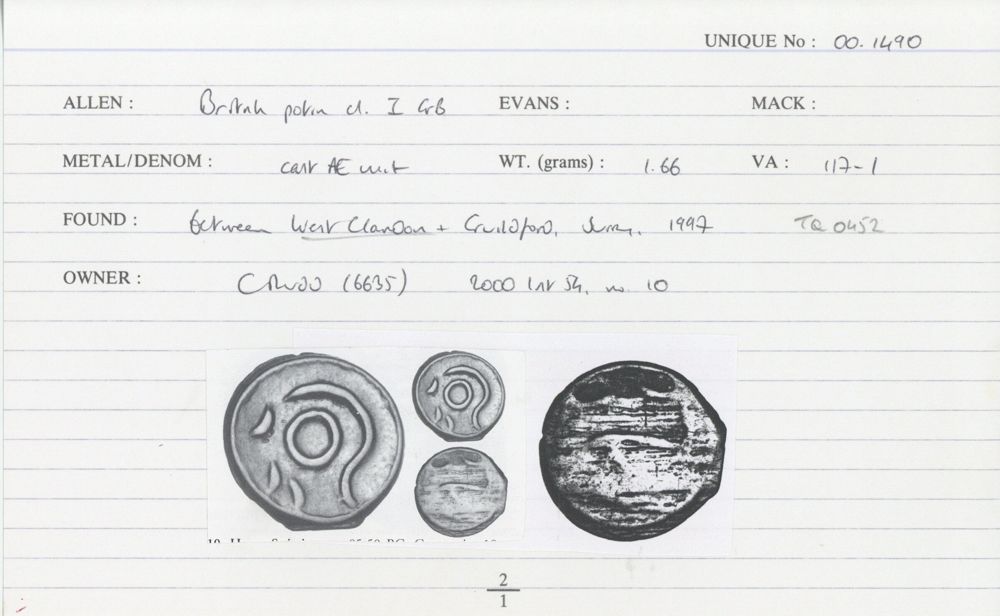 UNIQUE No : 00.1490
ALLEN : British potin cl. I EVANS : MACK :
METAL/DENOM : cast AE unit WT. (grams) : 1.66 VA : 117-1
FOUND : between West Clandon + Guildford, Surrey, 1997 TQ 0452
OWNER : (6635) 2000 List 54, no. 10
2
1